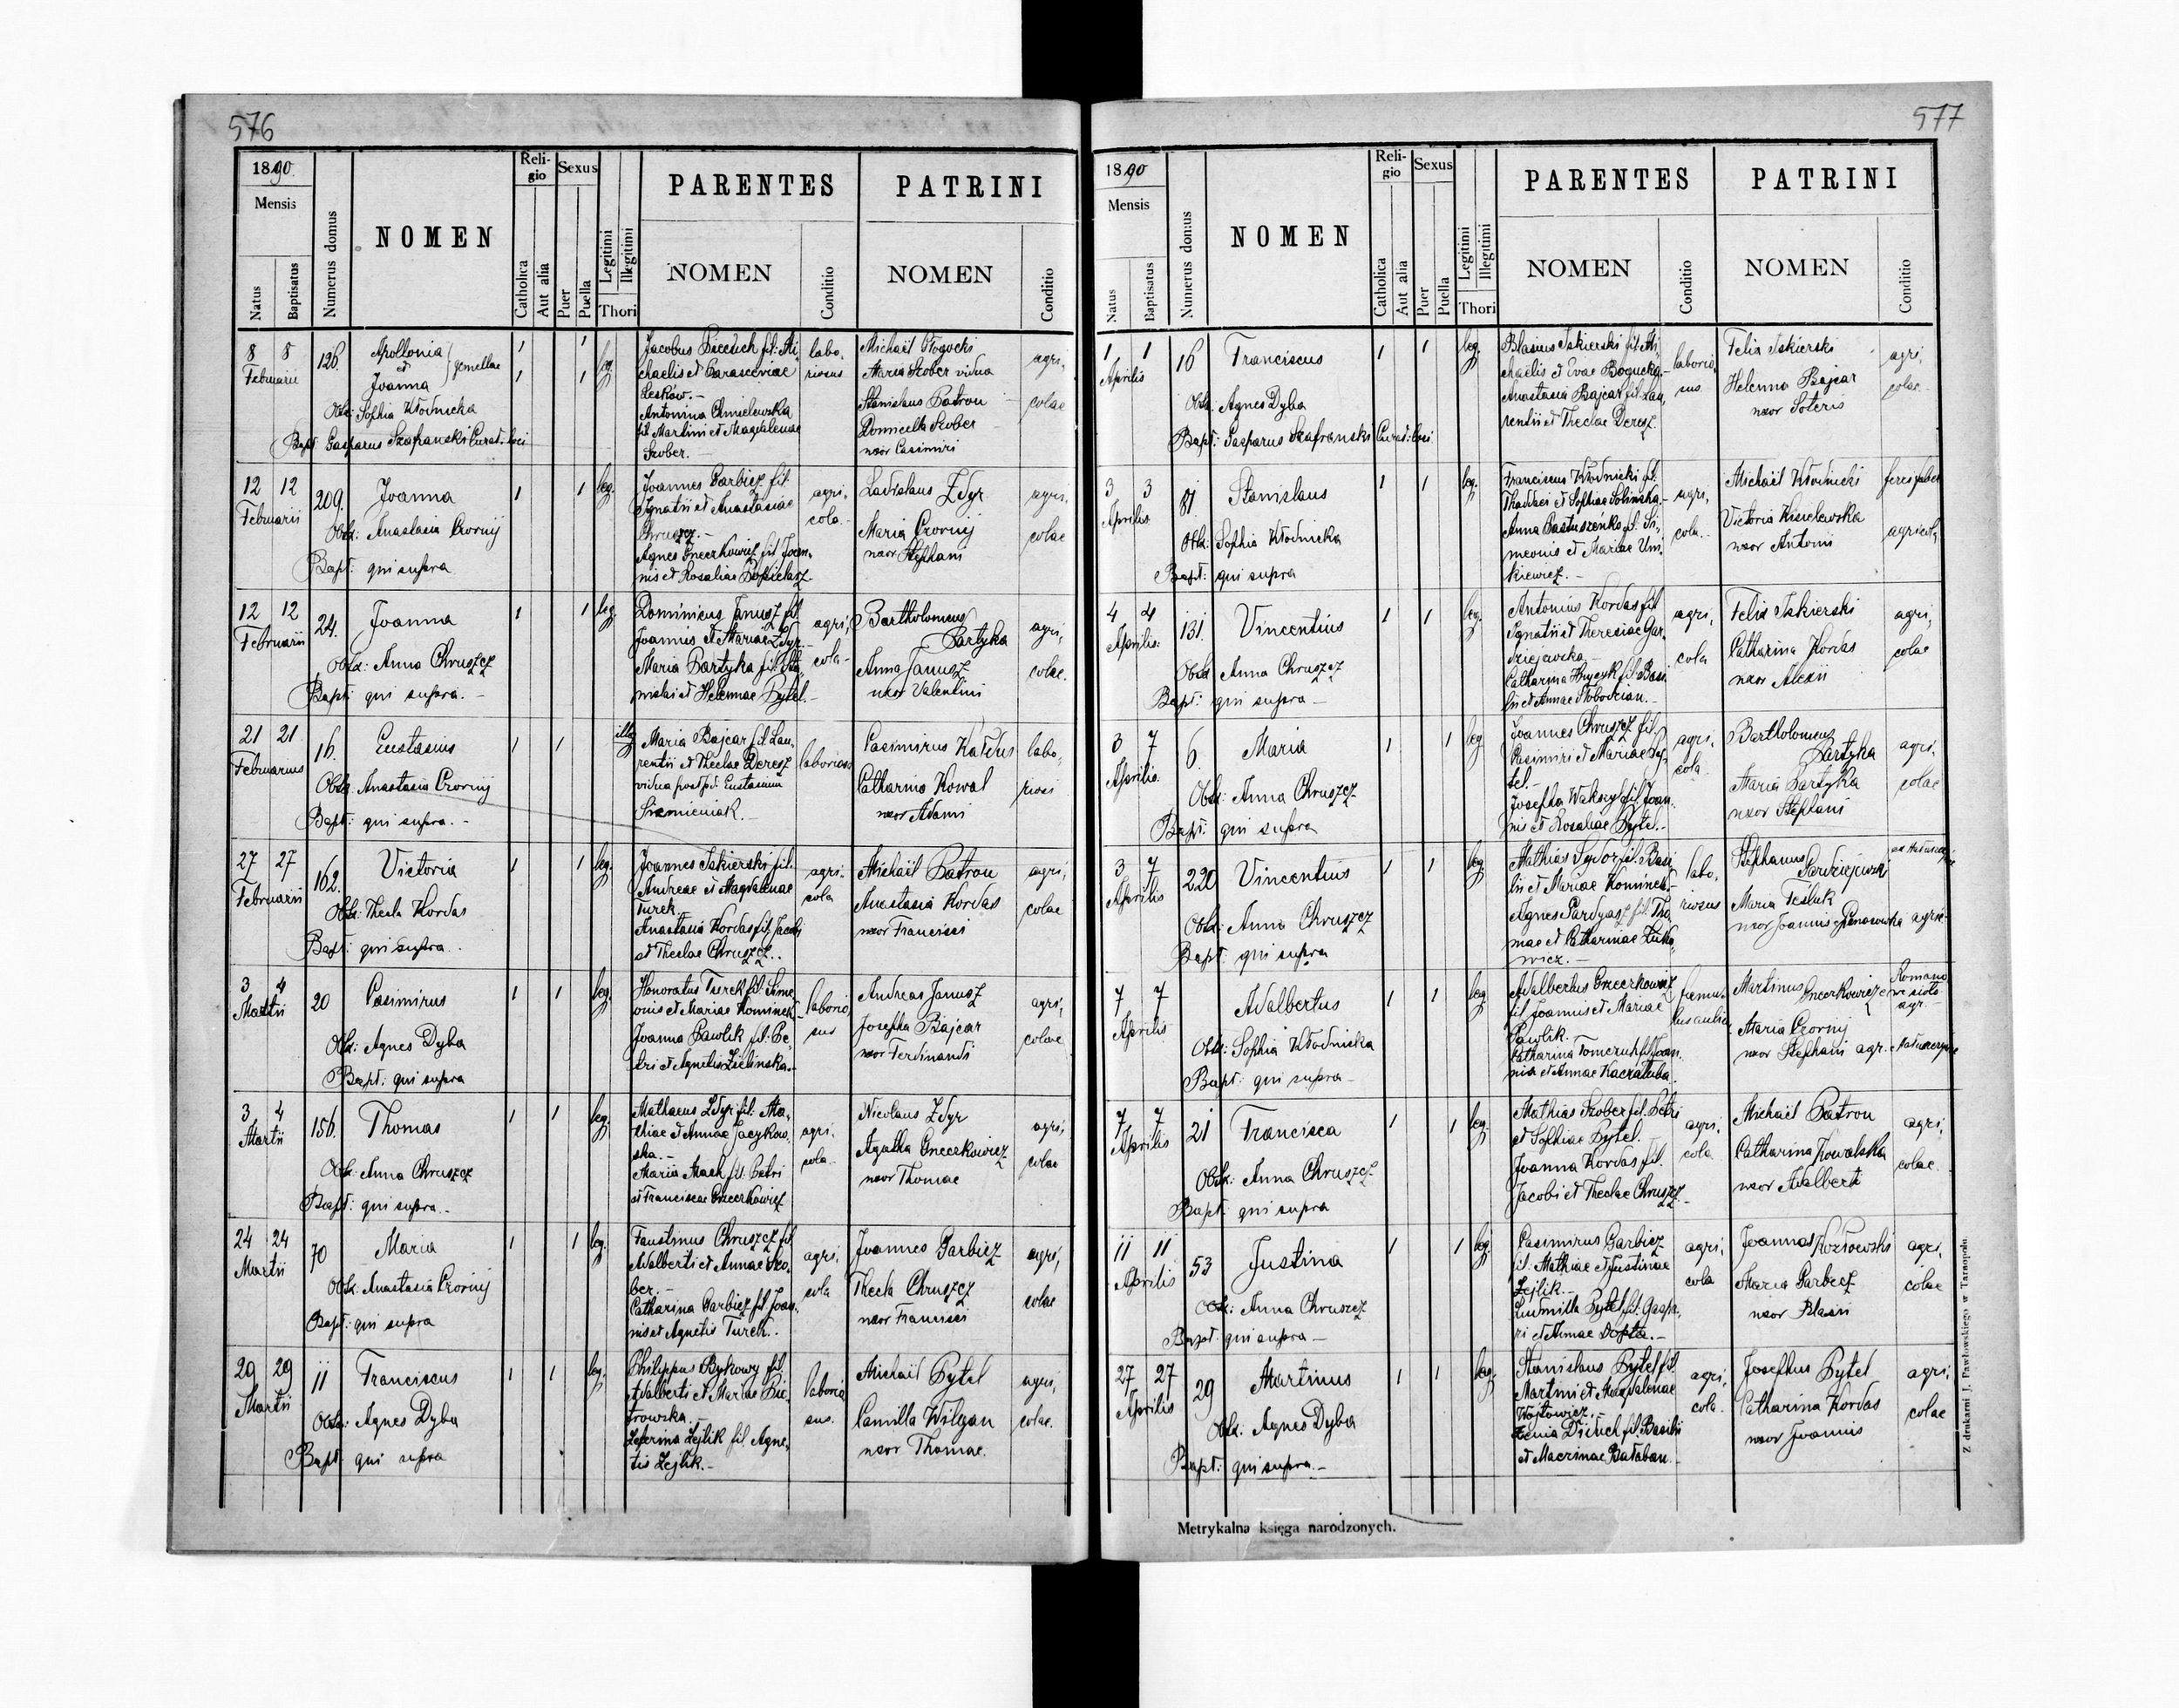 576
1890.
Mensis
Natus
Baptisatus
Numerus domus
NOMEN
Religio
Catholica
Aut alia
Sexus
Puer
Puella
Legitimi
Illegitimi
Thori
PARENTES
NOMEN
Conditio
PATRINI
NOMEN
Conditio
8 8 126. Apollonia
Februarii et gemellae
Joanna
Obst: Sophia Włodnicka
Bapt: Gasparus Szafranski Curat: loci
1 1 leg.
1 1
Jacobus fil: Mi-
chaelis et Parasceviae
Leskow.-
Antonina Chmielewska
fil Martini et Magdalenae
Szober.-
labo-
riosus
Michaël Głogocki
Maria Szober vidua
Stanislaus Patron
Domicella Szober
uxor Casimiri
agri-
colae
12 12 209. Joanna
Februarii
Obst: Anastasia Czornij
Bapt: qui supra
1 1 leg.
Joannes Garbicz fil
Ignatii et Anastasiae
Chruszcz.-
Agnes Gneerkowicz fil Joan-
nis et Rosaliae
agri-
cola.
Ladislaus Zdyr
Maria Czornij
uxor Stephani
agri-
colae
12 12 24. Joanna
Februarii
Obst: Anna Chruszcz
Bapt: qui supra.-
1 1 leg.
Dominicus Janusz fil.
Joannis et Mariae Zdyr.-
Maria Bartyka fil.
et Helennae Bytel.-
agri-
cola-
Bartholomeus
Bartyka
Anna Janusz
uxor Valentini
agri-
colae.
21 21 16. Eustasius
Februarius
Obst. Anastasia Czornij
Bapt: qui supra.-
1 1 illeg
Maria Bajcar fil Lau-
rentii et Theclae Deresz
vidua post pd: Eustasium
Siemieniak.-
laboriosa
Casimirus
Catharina Kowal
uxor Adami
labo-
riosi
27 27 162. Victoria
Februarii
Obst: Thecla Kordas
Bapt: qui supra.
1 1 leg.
Joannes Iskierski fil.
Andreae et Magdalenae
Turek
Anastasia Kordas fil. Jacobi
et Theclae Chruszcz.
agri-
cola
Michaël Patron
Anastasia Kordas
uxor Francisci
agri-
colae
3 4 20 Casimirus
Martii
Obst: Agnes Dyba
Bapt: qui supra
1 1 leg.
Honoratus Turek fil. Sime-
onis et Mariae Kominek-
Joanna Pawlik fil: Pe-
tri et Agnetis Zielinska.-
laborio-
sus
Andreas Janusz
Josepha Bajcar
uxor Ferdinandi
agri-
colae
3 4 156. Thomas
Martii
Obst: Anna Chruszcz
Bapt: qui supra.-
1 1 leg.
Mathaeus Zdyr fil: Ma-
thiae et Annae Jaczkow-
ska.-
Maria Mach fil. Petri
et Franciscae Gneerkowicz
agri-
cola.
Nicolaus Zdyr
Agatha Gneerkowicz
uxor Thomae
agri-
colae
24 24 70 Maria
Martii
Obst. Anastasia Czornij
Bapt: qui supra
1 1 leg.
Faustinus Chruszcz fil
Adalberti et Annae Szo-
ber.-
Catharina Garbicz fil Joan-
nis et Agnetis Turek.
agri-
cola
Joannes Garbicz
Thecla Chruszcz
uxor Francisci
agri-
colae
29 29 11 Franciscus
Martii
Obst: Agnes Dyba
Bapt: qui supra
1 1 leg.
Philippus Bykowy fil.
Adalberti et Mariae Pie-
trowska
Zeferina Zejlik fil. Agne-
tis Zejlik.-
laborio-
sus.
Michaël Bytel
Camilla Wilgan
uxor Thomae
agri-
colae.
577
1890
Mensis
Natus
Baptisatus
Numerus domus
NOMEN
Religio
Catholica
Aut alia
Sexus
Puer
Puella
Legitimi
Illegitimi
Thori
PARENTES
NOMEN
Conditio
PATRINI
NOMEN
Conditio
1 1 16 Franciscus
Aprilis
Obst. Agnes Dyba
Bapt: Gasparus Szafranski Curat: loci
1 1 leg.
Blasius Iskierski fil. Mi-
chaelis et Evae Bogucka-
Anastasia Bajcar fil. Lau-
rentii et Theclae Deresz.
laborio-
sus
Felix Iskierski
Helenna Bajcar
uxor Soteris
agri-
colae.
3 3 81 Stanislaus
Aprilis
Obst: Sophia Włodnicka
Bapt: qui supra
1 1 leg.
Franciscus Włodnicki fil.
Thaddaei et Sophiae Solinska.-
Anna Pastuszenko fil. Si-
meonis et Mariae Um-
kiewicz.-
agri-
cola.
Michaël Włodnicki
Victoria Kisielewska
uxor Antonii
agricola
4 4 131. Vincentius
Aprilis.
Obst Anna Chruszcz
Bapt: qui supra-
1 1 leg.
Antonius Kordas fil
Ignatii et Theresiae Gar-
dziejewska-
Catharina Hrycyk fil. Basi-
lii et Annae Słobodzian.-
agri-
cola
Felix Iskierski
Catharina Kordas
uxor Alexii
agri-
colae
3 7 6. Maria
Aprilis.
Obst: Anna Chruszcz
Bapt: qui supra
1 1 leg
Joannes Chruszcz fil.
Casimiri et Mariae By-
tel.-
Josepha fil. Joan-
nis et Rosaliae Bytel.-
agri-
cola
Bartholomeus
Bartyka
Maria Bartyka
uxor Stephani
agri-
colae
3 7 220 Vincentius
Aprilis
Obst: Anna Chruszcz
Bapt: qui supra
1 1 leg
Mathias Sydor fil. Basi-
lii et Mariae Kominek.-
Agnes fil. Tho-
mae et Catharinae Łuka-
wicz.-
labo-
riosus
Stephanus
Gardziejewski
Maria Tesluk
uxor Joannis agric.
7 7 Adalbertus
Aprilis
Obst: Sophia Włodnicka
Bapt: qui supra-
1 1 leg
Adalbertus Gneerkowicz
fil Joannis et Mariae
Pawlik.
Catharina Tomczuk fil Joan-
nis et Annae Kaczałuba
famu-
lus aulicus
Martinus Gneerkowicz
Maria Czornij
uxor Stephani agr.
Romano
we sioło
agr.
7 7 21 Francisca
Aprilis
Obst: Anna Chruszcz
Bapt: qui supra
1 1 leg.
Mathias Szober fil. Petri
et Sophiae Bytel.
Joanna Kordas fil.
Jacobi et Theclae Chruszcz.-
agri-
cola
Michaël Patron
Catharina Kowalska
uxor Adalberti
agri-
colae.
11 11 53 Justina
Aprilis
Obst: Anna Chruszcz
Bapt: qui supra-
1 1 leg.
Casimirus Garbicz
fil: Mathiae et Justinae
Zejlik.-
Ludmilla Bytel fil: Gaspa-
ri et Annae Dopta.-
agri-
cola
Joannes Kozłowski
Maria Garbicz
uxor Blasii
agri-
colae
27 27 29 Martinus
Aprilis
Obst. Agnes Dyba
Bapt: qui supra.-
1 1 leg.
Stanislaus Bytel fil
Martini et Magdalenae
Wojtowicz.-
Xenia Dziuch fil. Basilii
et Macrinae Bałaban.-
agri-
cola.
Josephus Bytel
Catharina Kordas
uxor Joannis
agri-
colae
Metrykalna księga narodzonych.
Z drukarni J. Pawłowskiego w Tarnopolu.